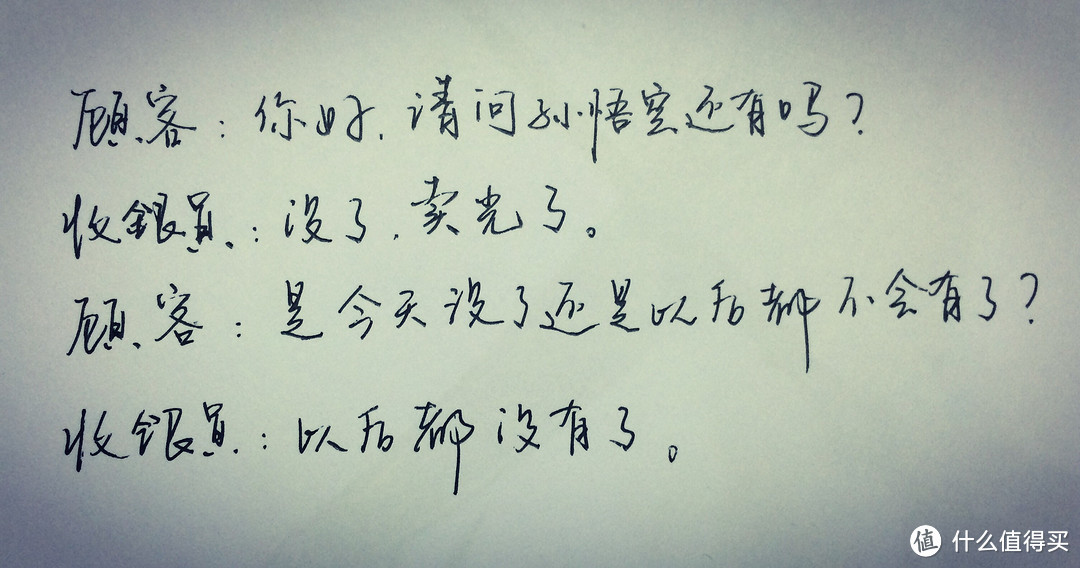 顧客：你好，请问孙悟空还有吗？
收銀員：没了，卖光了。
顧客：是今天没了还是以后都不会有了？
收銀員：以后都没有了。
值 什么值得买